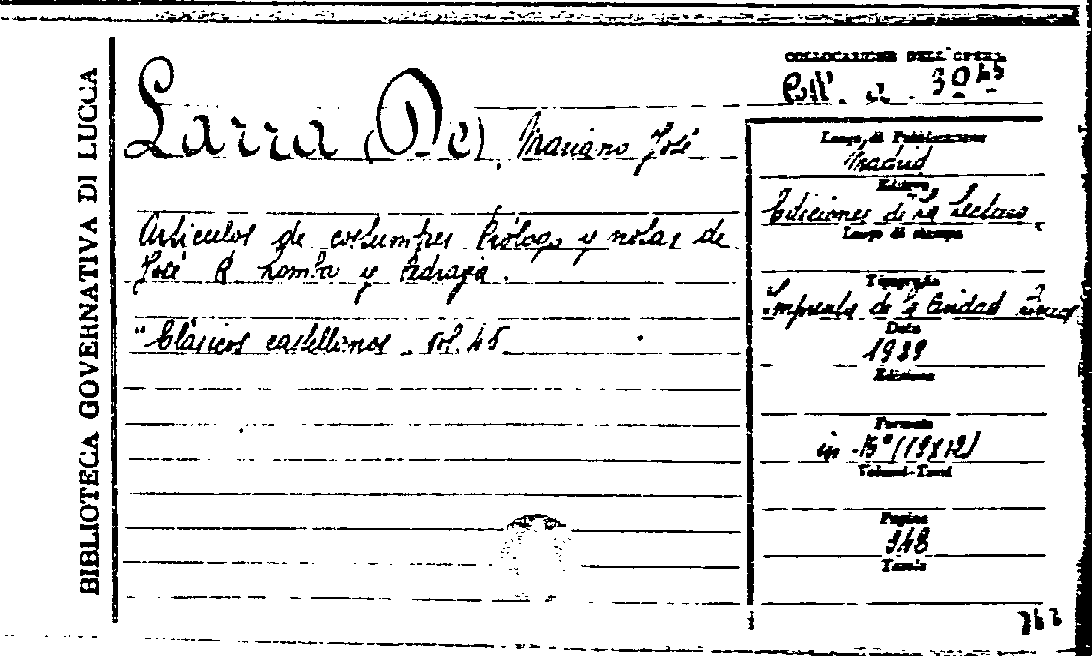 BIBLIOTECA GOVERNATIVA DI LUCCA
COLLOCAZIONE DELL'OPERA
Coll. a. 30 45
Larra (De), Mariano José
Articulos de costumpres Prólogo y notas de
José R Lomba y Pedraja.
"Clásicos castellanos. vol. 45
Luogo di Pubblicazione
Madrid
Editore
Ediciones de "La Lectura
Luogo di stampa
Tipografia
Imprenta de la Ciudad
Data
Edizione
Formato
in -16° (19x12)
Volumi-Tomi
Pagine
348
Tavole